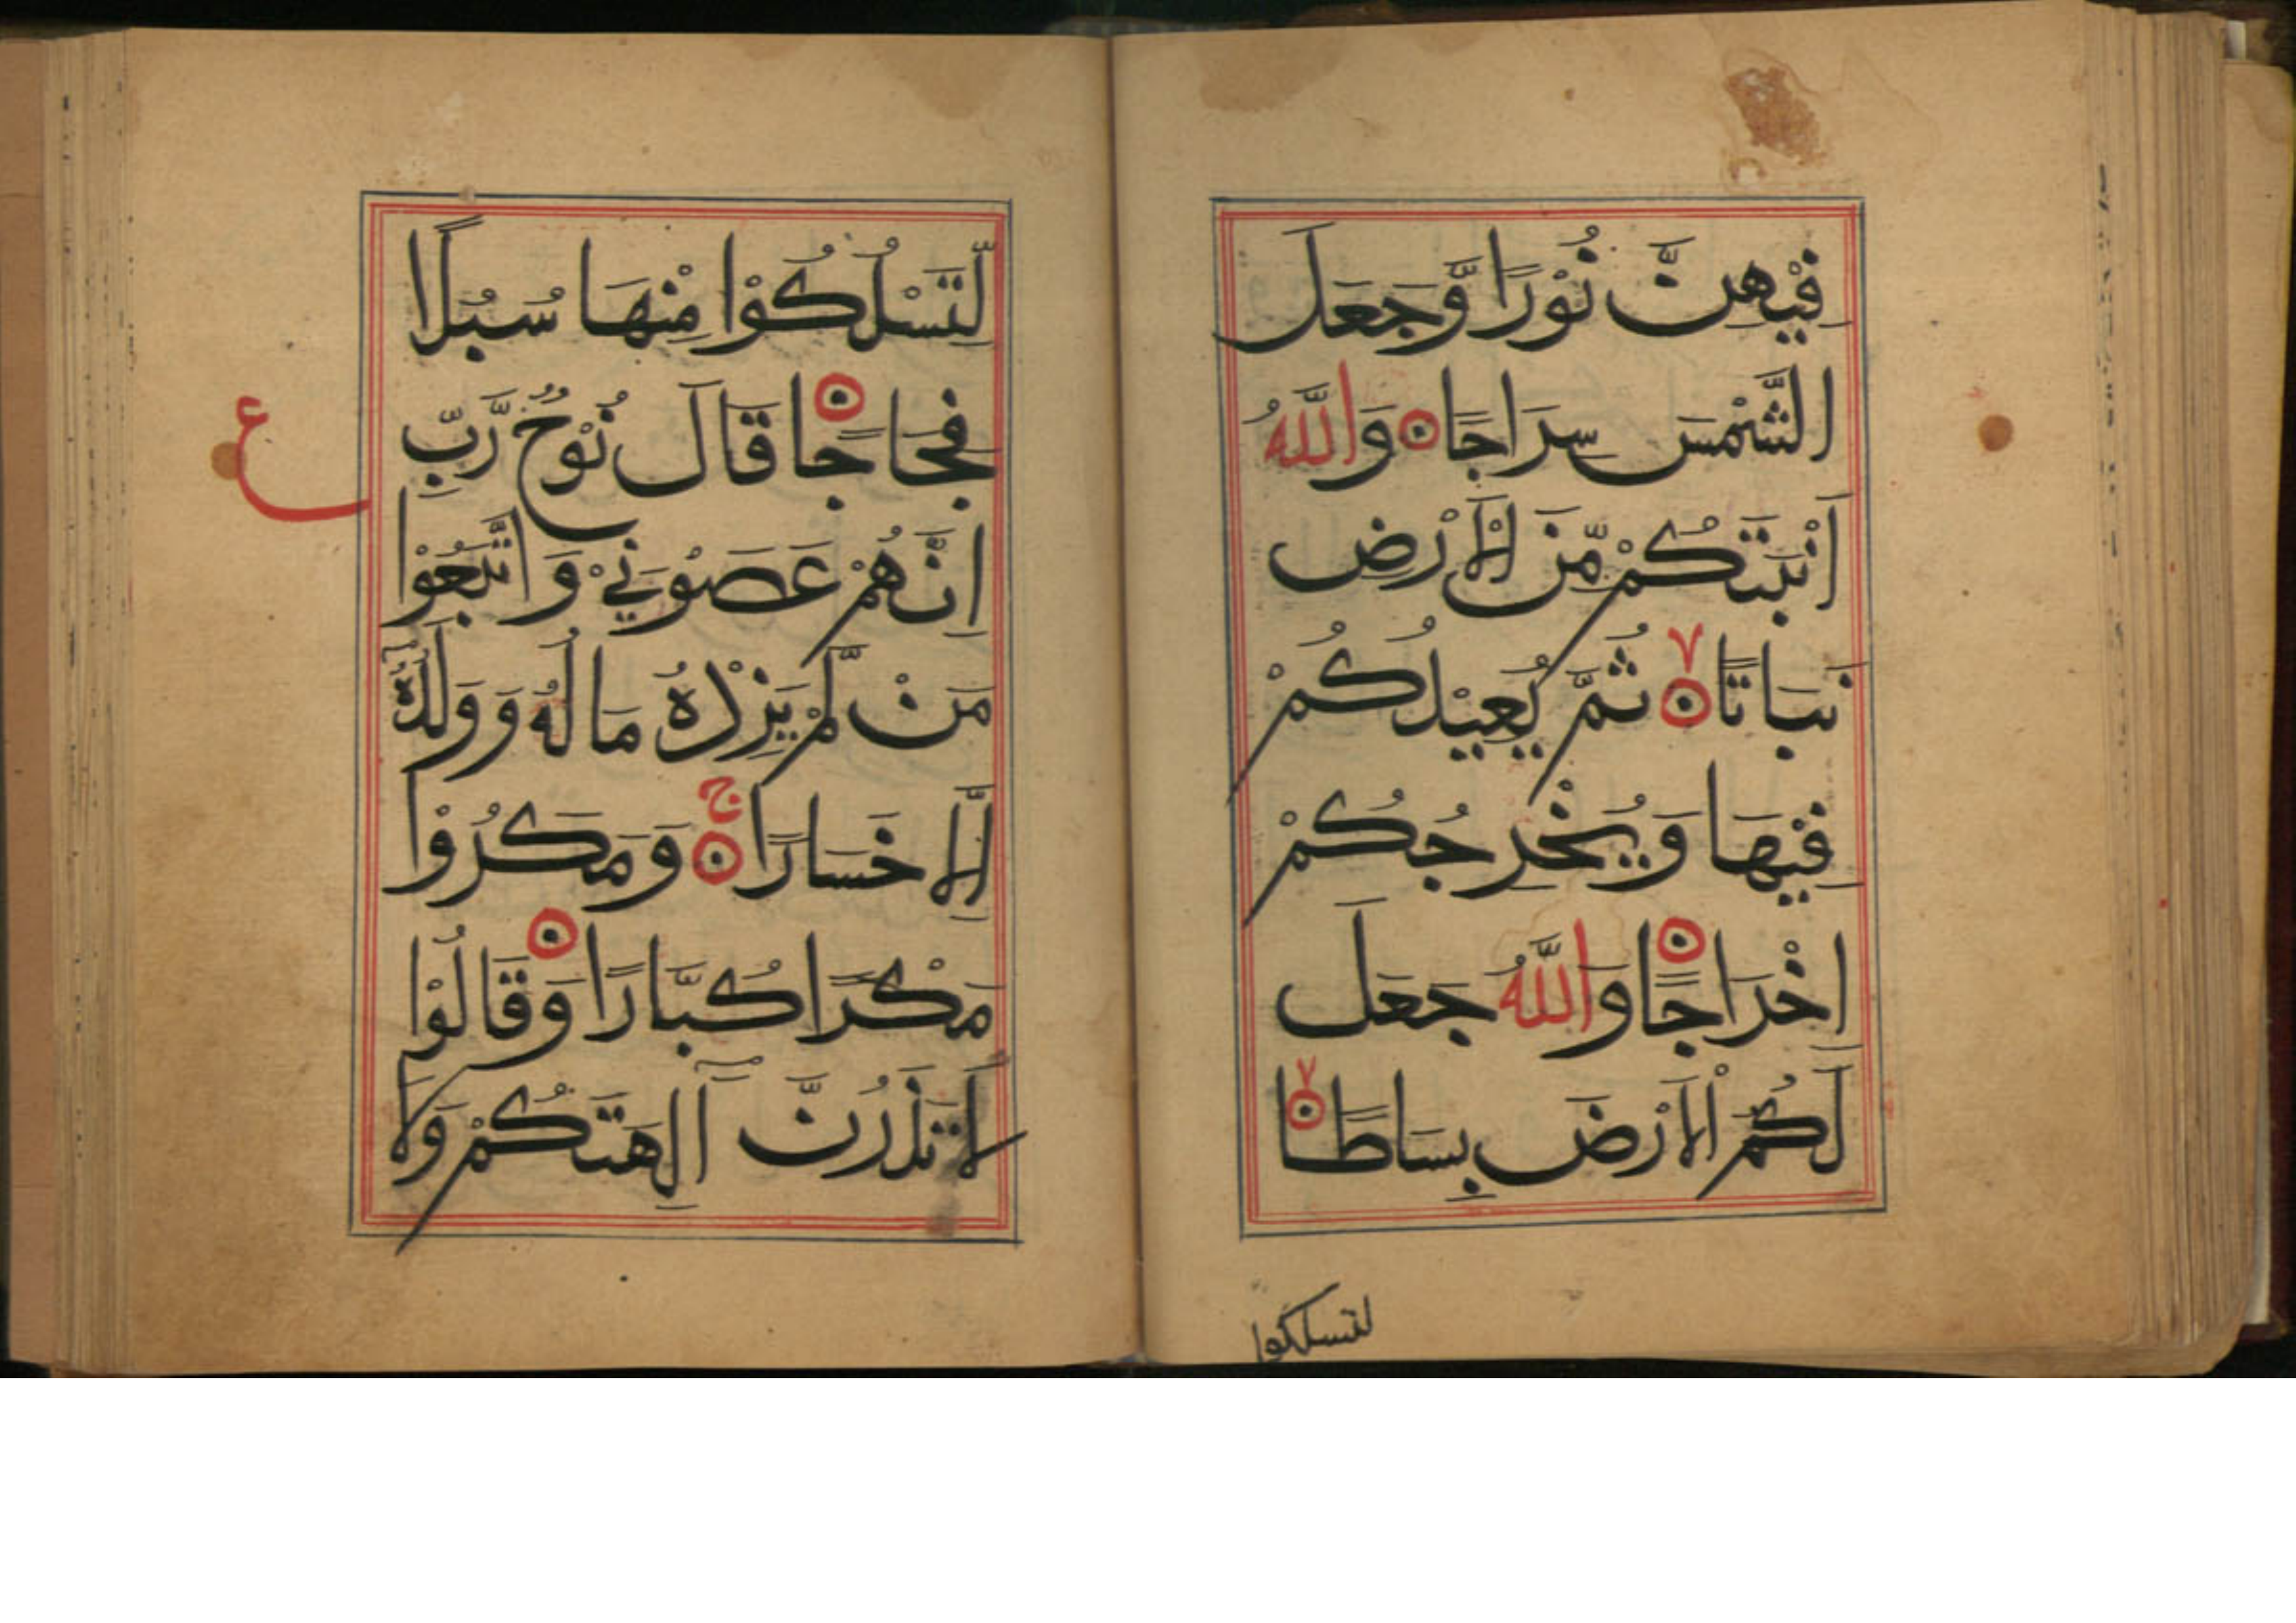 فِيْهِنَّ نُوْرًا وَّجَعَلَ
الشَّمْسَ سِرَاجًا ۝ وَاللّٰهُ
اَنْبَتَكُمْ مِّنَ الْاَرْضِ
نَبَاتًا ۝ ثُمَّ يُعِيْدُكُمْ
فِيْهَا وَيُخْرِجُكُمْ
اِخْرَاجًا ۝ وَاللّٰهُ جَعَلَ
لَكُمُ الْاَرْضَ بِسَاطًا ۝
لتسلكوا
لِّتَسْلُكُوْا مِنْهَا سُبُلًا
فِجَاجًا ۝ قَالَ نُوْحٌ رَّبِّ
ع
اِنَّهُمْ عَصَوْنِيْ وَاتَّبَعُوْا
مَنْ لَّمْ يَزِدْهُ مَالُهٗ وَوَلَدُهٗٓ
اِلَّا خَسَارًا ۝ۚ وَمَكَرُوْا
مَكْرًا كُبَّارًا ۝ وَقَالُوْا
لَا تَذَرُنَّ اٰلِهَتَكُمْ وَلَا